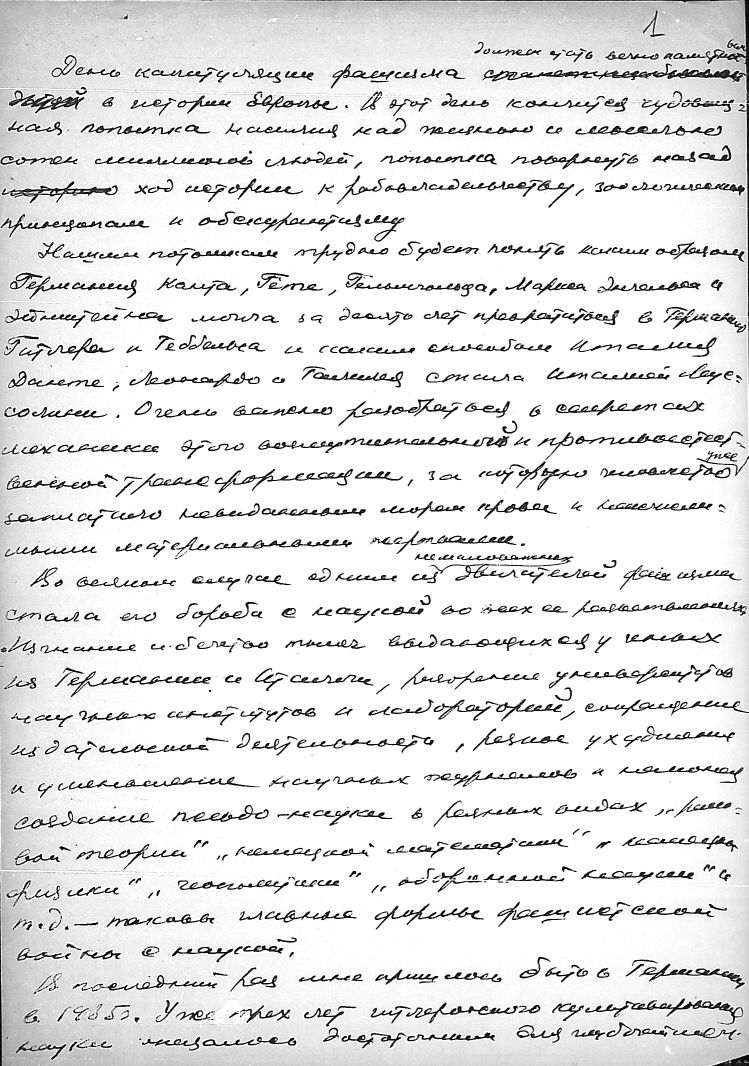 1
должен стать вечно памятным
День капитуляции фашизма
в истории Европы. В этот день кончится чудовищ-
ная попытка насилия над жизнью и мыслью
сотен миллионов людей, попытка повернуть назад
историю ход истории к рабовладельчеству, зоологическим
принципам и обскурантизму
Нашим потомкам трудно будет понять каким образом
Германия Канта, Гёте, Гельмгольца, Маркса Энгельса и
Эйнштейна могла за десять лет превратиться в Германию
Гитлера и Геббельса и каким способом Италия
Данте, Леонардо и Галилея стала Италией Мус-
солини. Очень важно разобраться в секретах
механики этого возмутительного и противоестест-
уже
венной трансформации, за которую человечество
заплатило невиданным морем крови и неисчисли-
мыми материальными жертвами.
немаловажных
Во всяком случае одним из двигателей фашизма
стала его борьба с наукой во всех ее разветвлениях
Изгнание и бегство тысяч выдающихся ученых
из Германии и Италии, разорение университетов
научных институтов и лабораторий, сокращение
издательской деятельности, резкое ухудшение
и уменьшение научных журналов и наконец
создание псевдо-науки в разных видах „расо-
вой теории" „немецкой математики" „немецкой
физики" „геополитики" „оборонной науки" и
т.д. — таковы главные формы фашистской
войны с наукой.
В последний раз мне пришлось быть в Германии
в 1935г. Уже трех лет гитлеровского культивирования
науки оказалось достаточным для глубочайшей